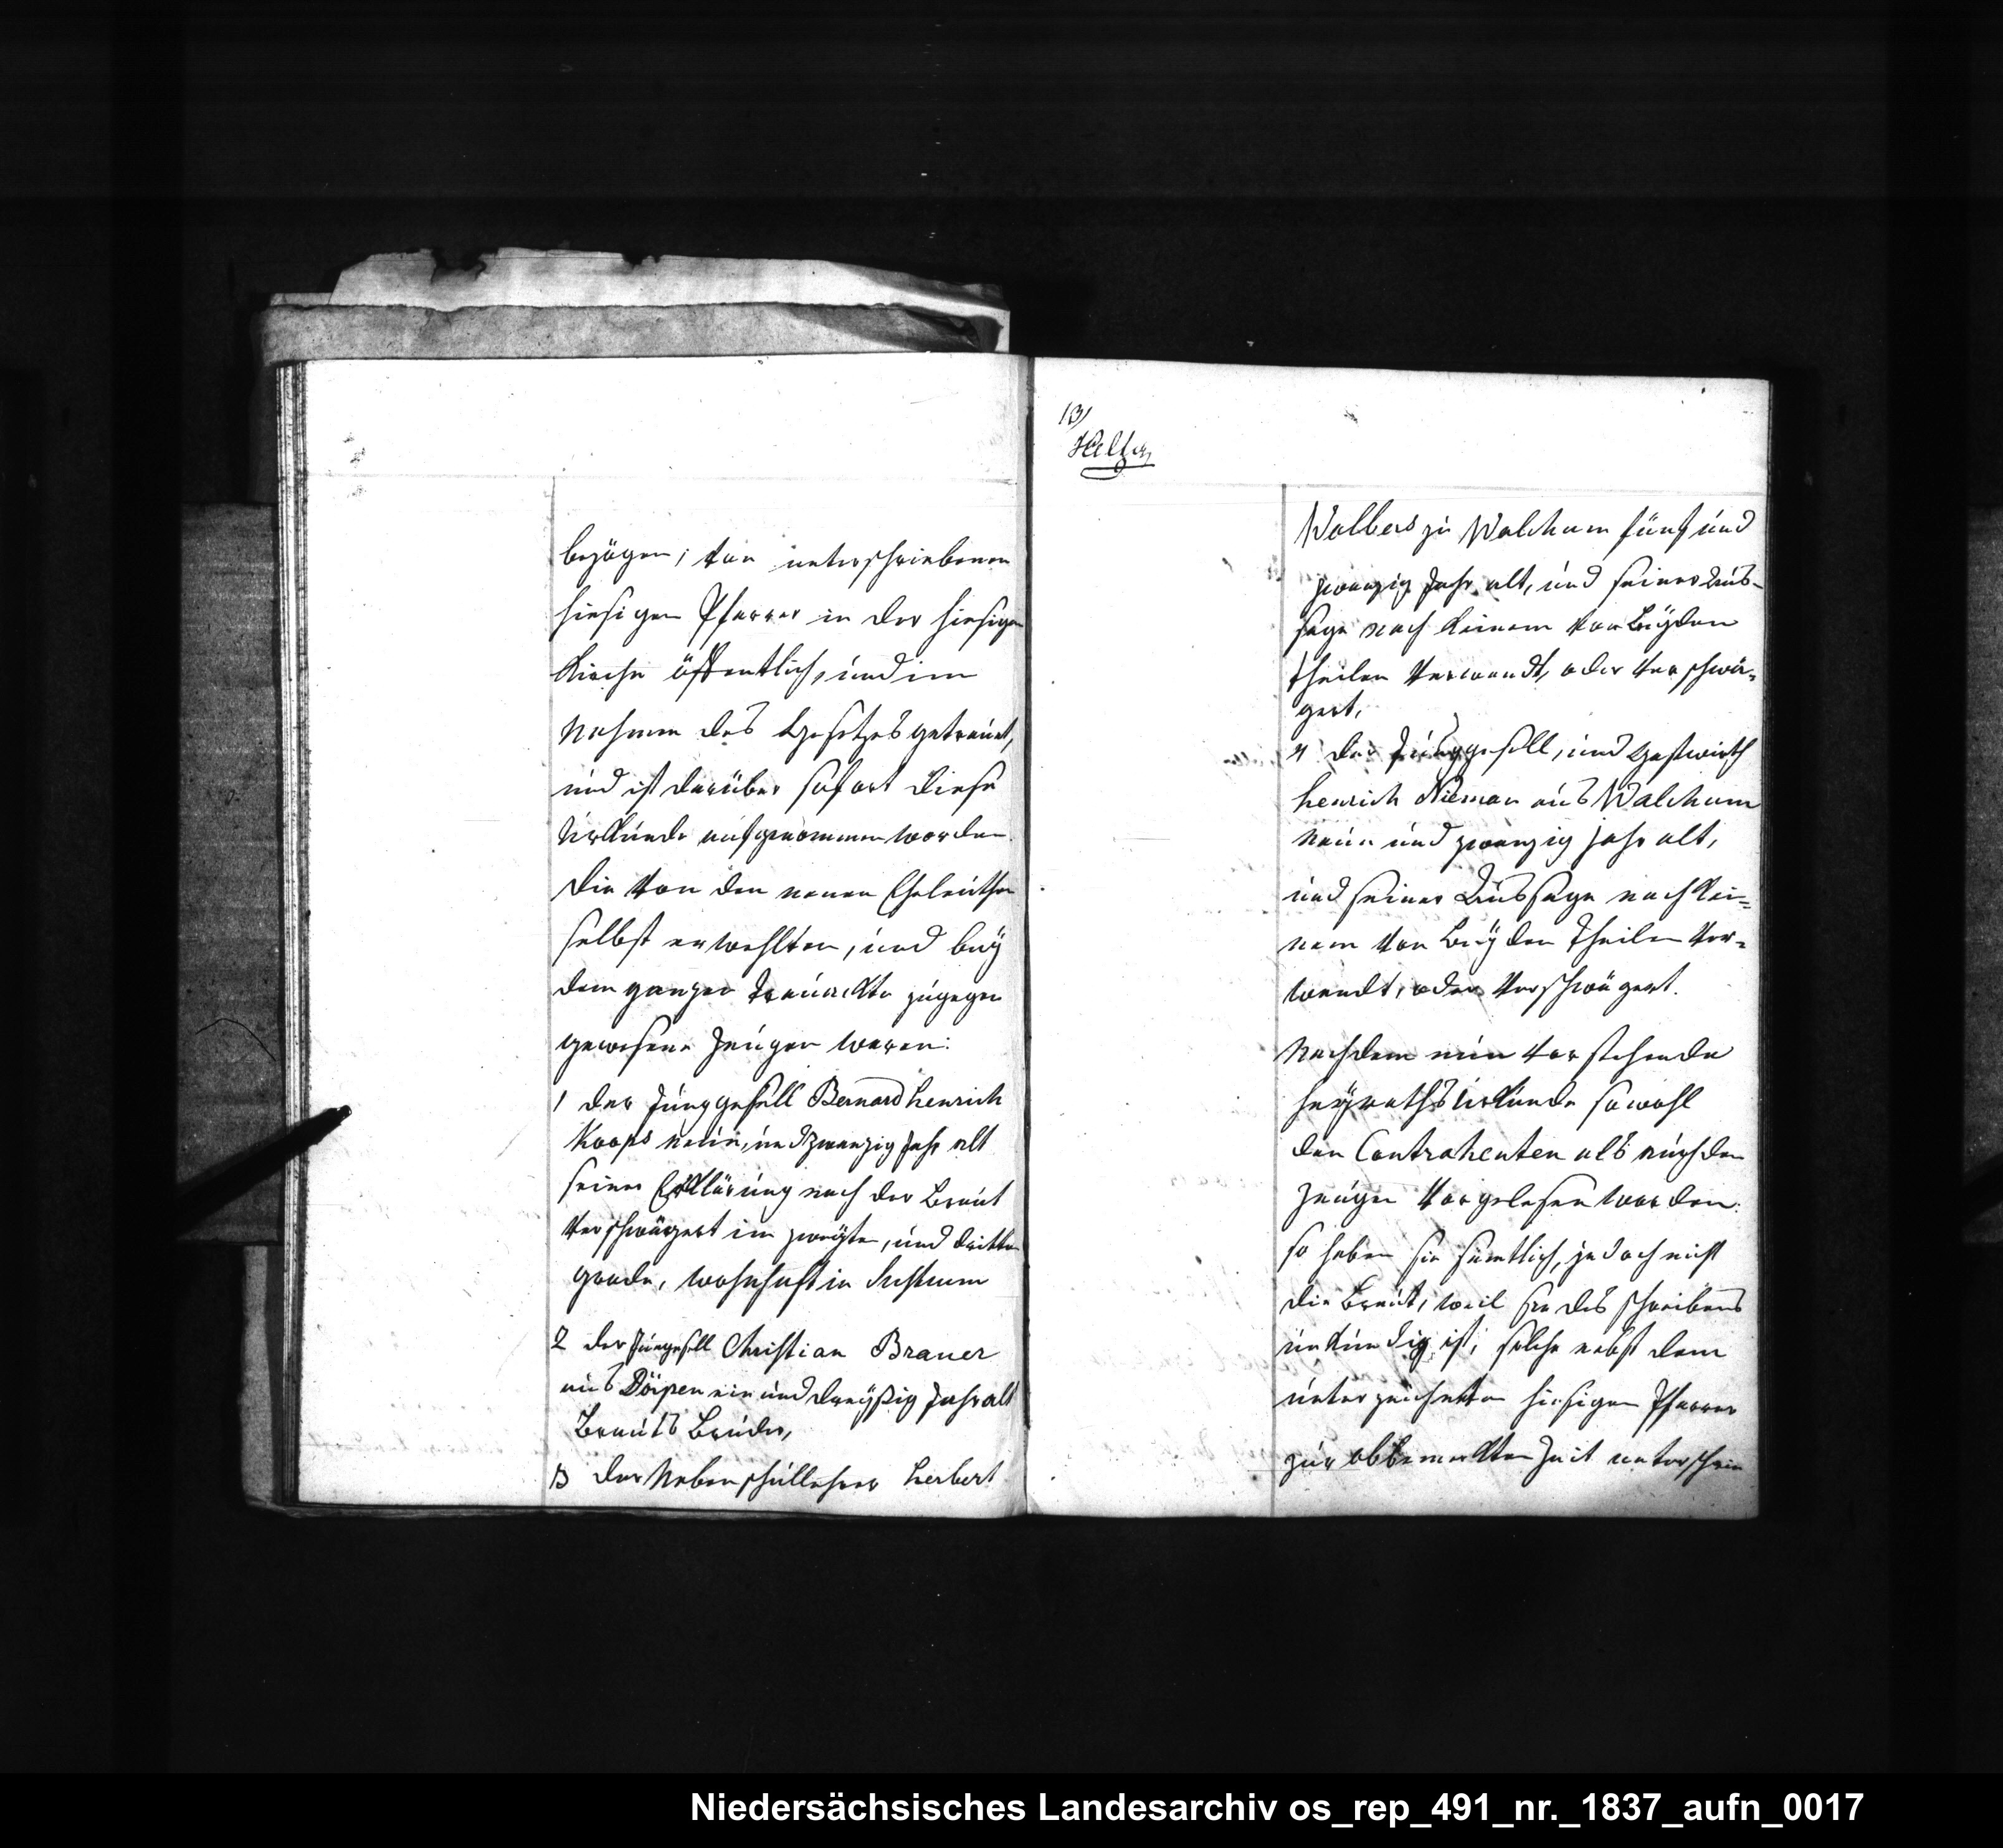 bezogen; von unterschriebenen
hiesigen Pfarrer in der hiesigen
Kirche öffentlich, und im
Nahmen des Gesetzes getrauet,
und ist darüber sofort diese
Urkunde aufgenommen worden.
Die von den neuen Eheleuthen
selbst erwehlten, und bey
dem ganzen Trauackte zugegen
gewesene Zeugen waren:
1 der Junggesell Bernard Henrich
Koops neun, und zwanzig Jahr alt
seiner Erklärung nach der Braut
verschwägert im zweyten, und dritten
grade, wohnhaft in Sustrum
2 der Jungesell Christian Brauer
aus Dörpen ein und dreyßig Jahr alt
Brauts Bruder,
3 der Nebenschullehrer Herbert
13)
Wolbers zu Walchum fünf und
zwanzig Jahr alt, und seiner Aus-
sage nach keinem von beyden
Theilen verwandt, oder verschwä-
gert,
4 der Junggesell, und Gastwirth
Henrich Nieman aus Walchum
neun und zwanzig Jahr alt,
und seiner Aussage nach kei-
nem von beyden Theilen ver-
wandt, oder verschwägert.
Nachdem nun vorstehende
Heyraths Urkunde sowohl
den Contrahenten als auch den
Zeugen vorgelesen worden:
so haben sie samtlich, jedoch nicht
die Braut, weil sie des schreibens
unkundig ist, solche nebst dem
unterzeichneten hiesigen Pfarrer
zur obbemerkten Zeit unterschrie
Niedersächsisches Landesarchiv os_rep_491_nr._1837_aufn_0017